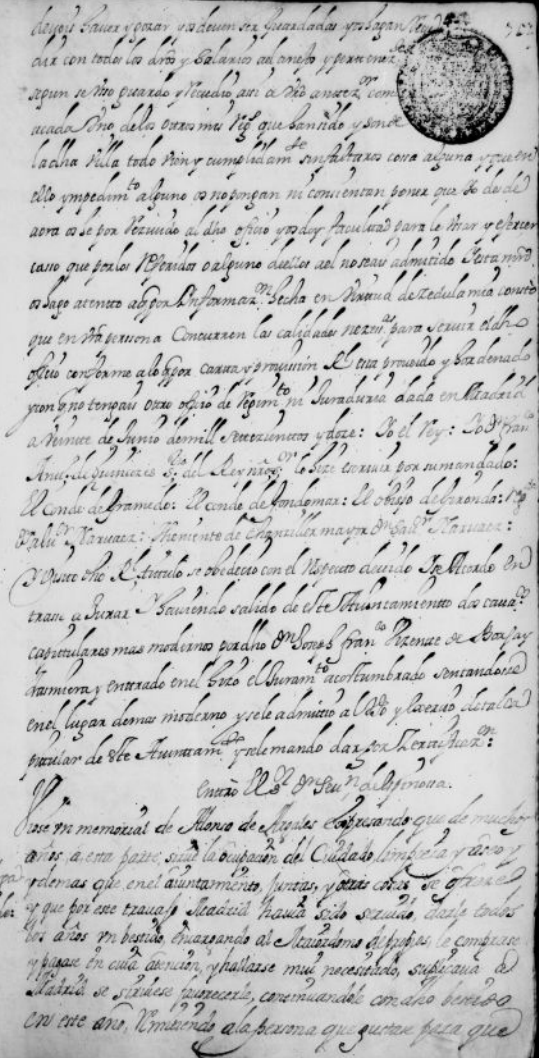 deveis haver y gozar y os deven ser guardadas y os hagan
dir con todos los dros y salarios al anejo y pertene
segun se uso guardo y recudio asi a antez.r como
a cada Uno de los otros mis reg.s que han sido y son de
la dha Villa todo vien y cumplidam.te sin faltaros cossa alguna y que en
ello ympedim.to alguno os no pongan ni consientan poner que Yo desde
aora os he por rezivido al dho oficio y os doy facultad para le usar y exercer
casso que por los referidos o alguno dellos a el no seais admitido Y esta mrd
os hago atento a q por Informaz.n hecha en virtud de zedula mia consto
que en vra persona Concurren las calidades nezes.s para servir el dho
oficio conforme a lo q por carta y provission R.l esta proveido y hordenado
y con q no tengais otro oficio de regim.to ni Juraduria dada en Madrid
a Veinte de Junio de mill setezientos y doze: Yo el Rey: Yo D.n Fran.co
del Rey nro s.r lo hize escrivir por su mandado:
El Conde de Gramedo: El conde de Gondomar: El obispo de Gironda:
Narvaez: Theniente de Chanziller mayor D.n Narvaez:
Y Visto dho R.l titulo se obedecio con el Respecto devido Se Acordo en
trase a Jurar Y haviendo salido de este Ayuntamiento dos cava.s
capitulares mas modernos por dho D.n Joseph Fran.co de Borja y
y entrado en el hizo el Juram.to acostumbrado sentandose
en el lugar de mas moderno y se le admitio al Uso y exerzio de tal ca
pitular de este Ayuntam.to y se le mando dar por Zertificaz.on:
entro El S.r D.n de Espinosa.
Viose un memorial de Alonso de expresando que de muchos
años, a esta parte, la ocupacion del Cuidado, limpieza y aseo y
y demas que en el aiuntamiento, Juntas, y otras cosas se ofrece
y que por este travajo Madrid havia sido servido, darle todos
los años un bestido, encargando al Maiordomo de propios, le comprase
y pagase en cuia atencion, y hallarse mui necesitado, suplicava a
Madrid se sirviese favorecerle, continuandole con dho bestido
en este año, Rimitiendo a la persona que gustare para que